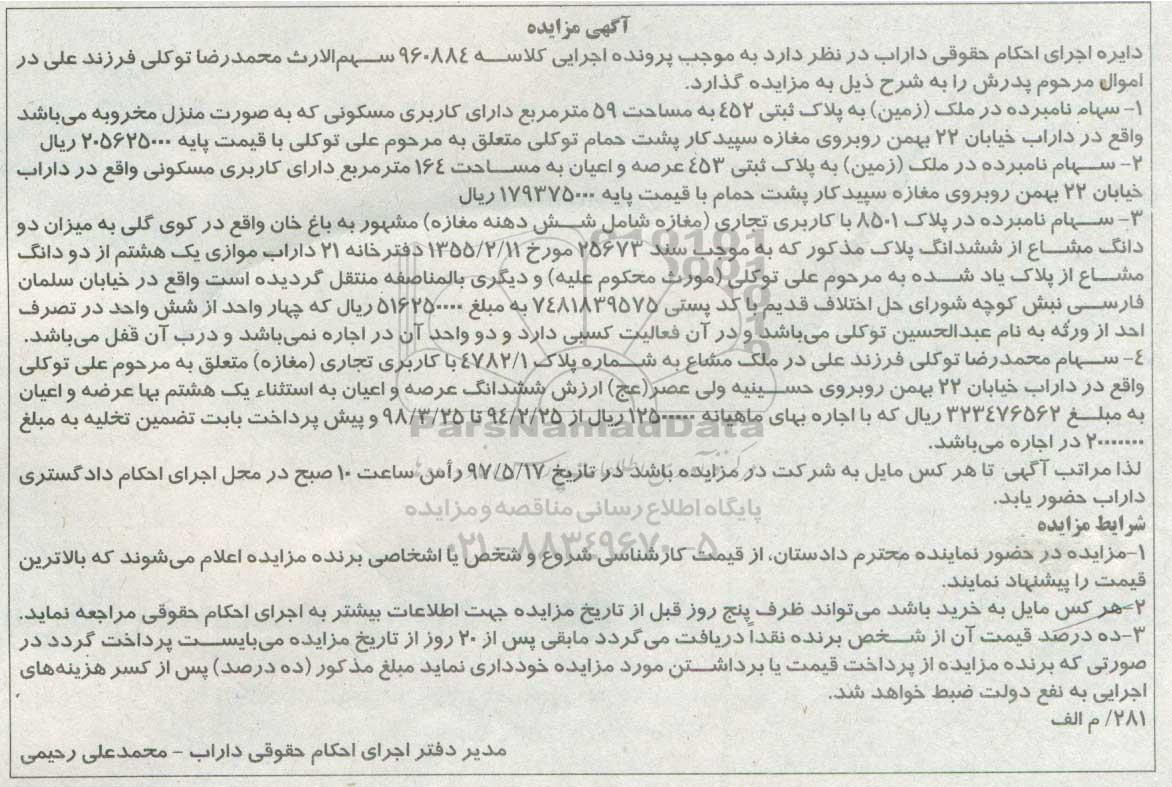 آگهی مزایده
دایره اجرای احکام حقوقی داراب در نظر دارد به موجب پرونده اجرایی کلاسه ۹۶۰۸۸۴ سهم‌الارث محمدرضا توکلی فرزند علی در
اموال مرحوم پدرش را به شرح ذیل به مزایده گذارد.
۱- سهام نامبرده در ملک (زمین) به پلاک ثبتی ۴۵۲ به مساحت ۵۹ مترمربع دارای کاربری مسکونی که به صورت منزل مخروبه می‌باشد
واقع در داراب خیابان ۲۲ بهمن روبروی مغازه سپیدکار پشت حمام توکلی متعلق به مرحوم علی توکلی با قیمت پایه ۲۰۵۶۲۵۰۰۰ ریال
۲- سهام نامبرده در ملک (زمین) به پلاک ثبتی ۴۵۳ عرصه و اعیان به مساحت ۱۶۴ مترمربع دارای کاربری مسکونی واقع در داراب
خیابان ۲۲ بهمن روبروی مغازه سپیدکار پشت حمام با قیمت پایه ۱۷۹۳۷۵۰۰۰ ریال
۳- سهام نامبرده در پلاک ۸۵۰۱ با کاربری تجاری (مغازه شامل شش دهنه مغازه) مشهور به باغ خان واقع در کوی گلی به میزان دو
دانگ مشاع از ششدانگ پلاک مذکور که به موجب سند ۲۵۶۷۳ مورخ ۱۳۵۵/۲/۱۱ دفترخانه ۲۱ داراب موازی یک هشتم از دو دانگ
مشاع از پلاک یاد شده به مرحوم علی توکلی (مورث محکوم علیه) و دیگری بالمناصفه منتقل گردیده است واقع در خیابان سلمان
فارسی نبش کوچه شورای حل اختلاف قدیم با کد پستی ۷۴۸۱۸۳۹۵۷۵ به مبلغ ۵۱۶۲۵۰۰۰۰ ریال که چهار واحد از شش واحد در تصرف
احد از ورثه به نام عبدالحسین توکلی می‌باشد و در آن فعالیت کسبی دارد و دو واحد آن در اجاره نمی‌باشد و درب آن قفل می‌باشد.
۴- سهام محمدرضا توکلی فرزند علی در ملک مشاع به شماره پلاک ۴۷۸۲/۱ با کاربری تجاری (مغازه) متعلق به مرحوم علی توکلی
واقع در داراب خیابان ۲۲ بهمن روبروی حسینیه ولی عصر(عج) ارزش ششدانگ عرصه و اعیان به استثناء یک هشتم بها عرضه و اعیان
به مبلغ ۳۲۳۴۷۶۵۶۲ ریال که با اجاره بهای ماهیانه ۱۲۵۰۰۰۰۰ ریال از ۹۴/۲/۲۵ تا ۹۸/۳/۲۵ و پیش پرداخت بابت تضمین تخلیه به مبلغ
۲۰۰۰۰۰۰۰ در اجاره می‌باشد.
لذا مراتب آگهی تا هر کس مایل به شرکت در مزایده باشد در تاریخ ۹۷/۵/۱۷ رأس ساعت ۱۰ صبح در محل اجرای احکام دادگستری
داراب حضور یابد.
شرایط مزایده
۱-مزایده در حضور نماینده محترم دادستان، از قیمت کارشناسی شروع و شخص یا اشخاصی برنده مزایده اعلام می‌شوند که بالاترین
قیمت را پیشنهاد نمایند.
۲-هر کس مایل به خرید باشد می‌تواند ظرف پنج روز قبل از تاریخ مزایده جهت اطلاعات بیشتر به اجرای احکام حقوقی مراجعه نماید.
۳-ده درصد قیمت آن از شخص برنده نقداً دریافت می‌گردد مابقی پس از ۲۰ روز از تاریخ مزایده می‌بایست پرداخت گردد در
صورتی که برنده مزایده از پرداخت قیمت یا برداشتن مورد مزایده خودداری نماید مبلغ مذکور (ده درصد) پس از کسر هزینه‌های
اجرایی به نفع دولت ضبط خواهد شد.
۲۸۱/ م الف
مدیر دفتر اجرای احکام حقوقی داراب – محمدعلی رحیمی
ParsNamadData
پایگاه اطلاع رسانی مناقصه و مزایده
۰۲۱-۸۸۳۴۹۶۷۰-۵